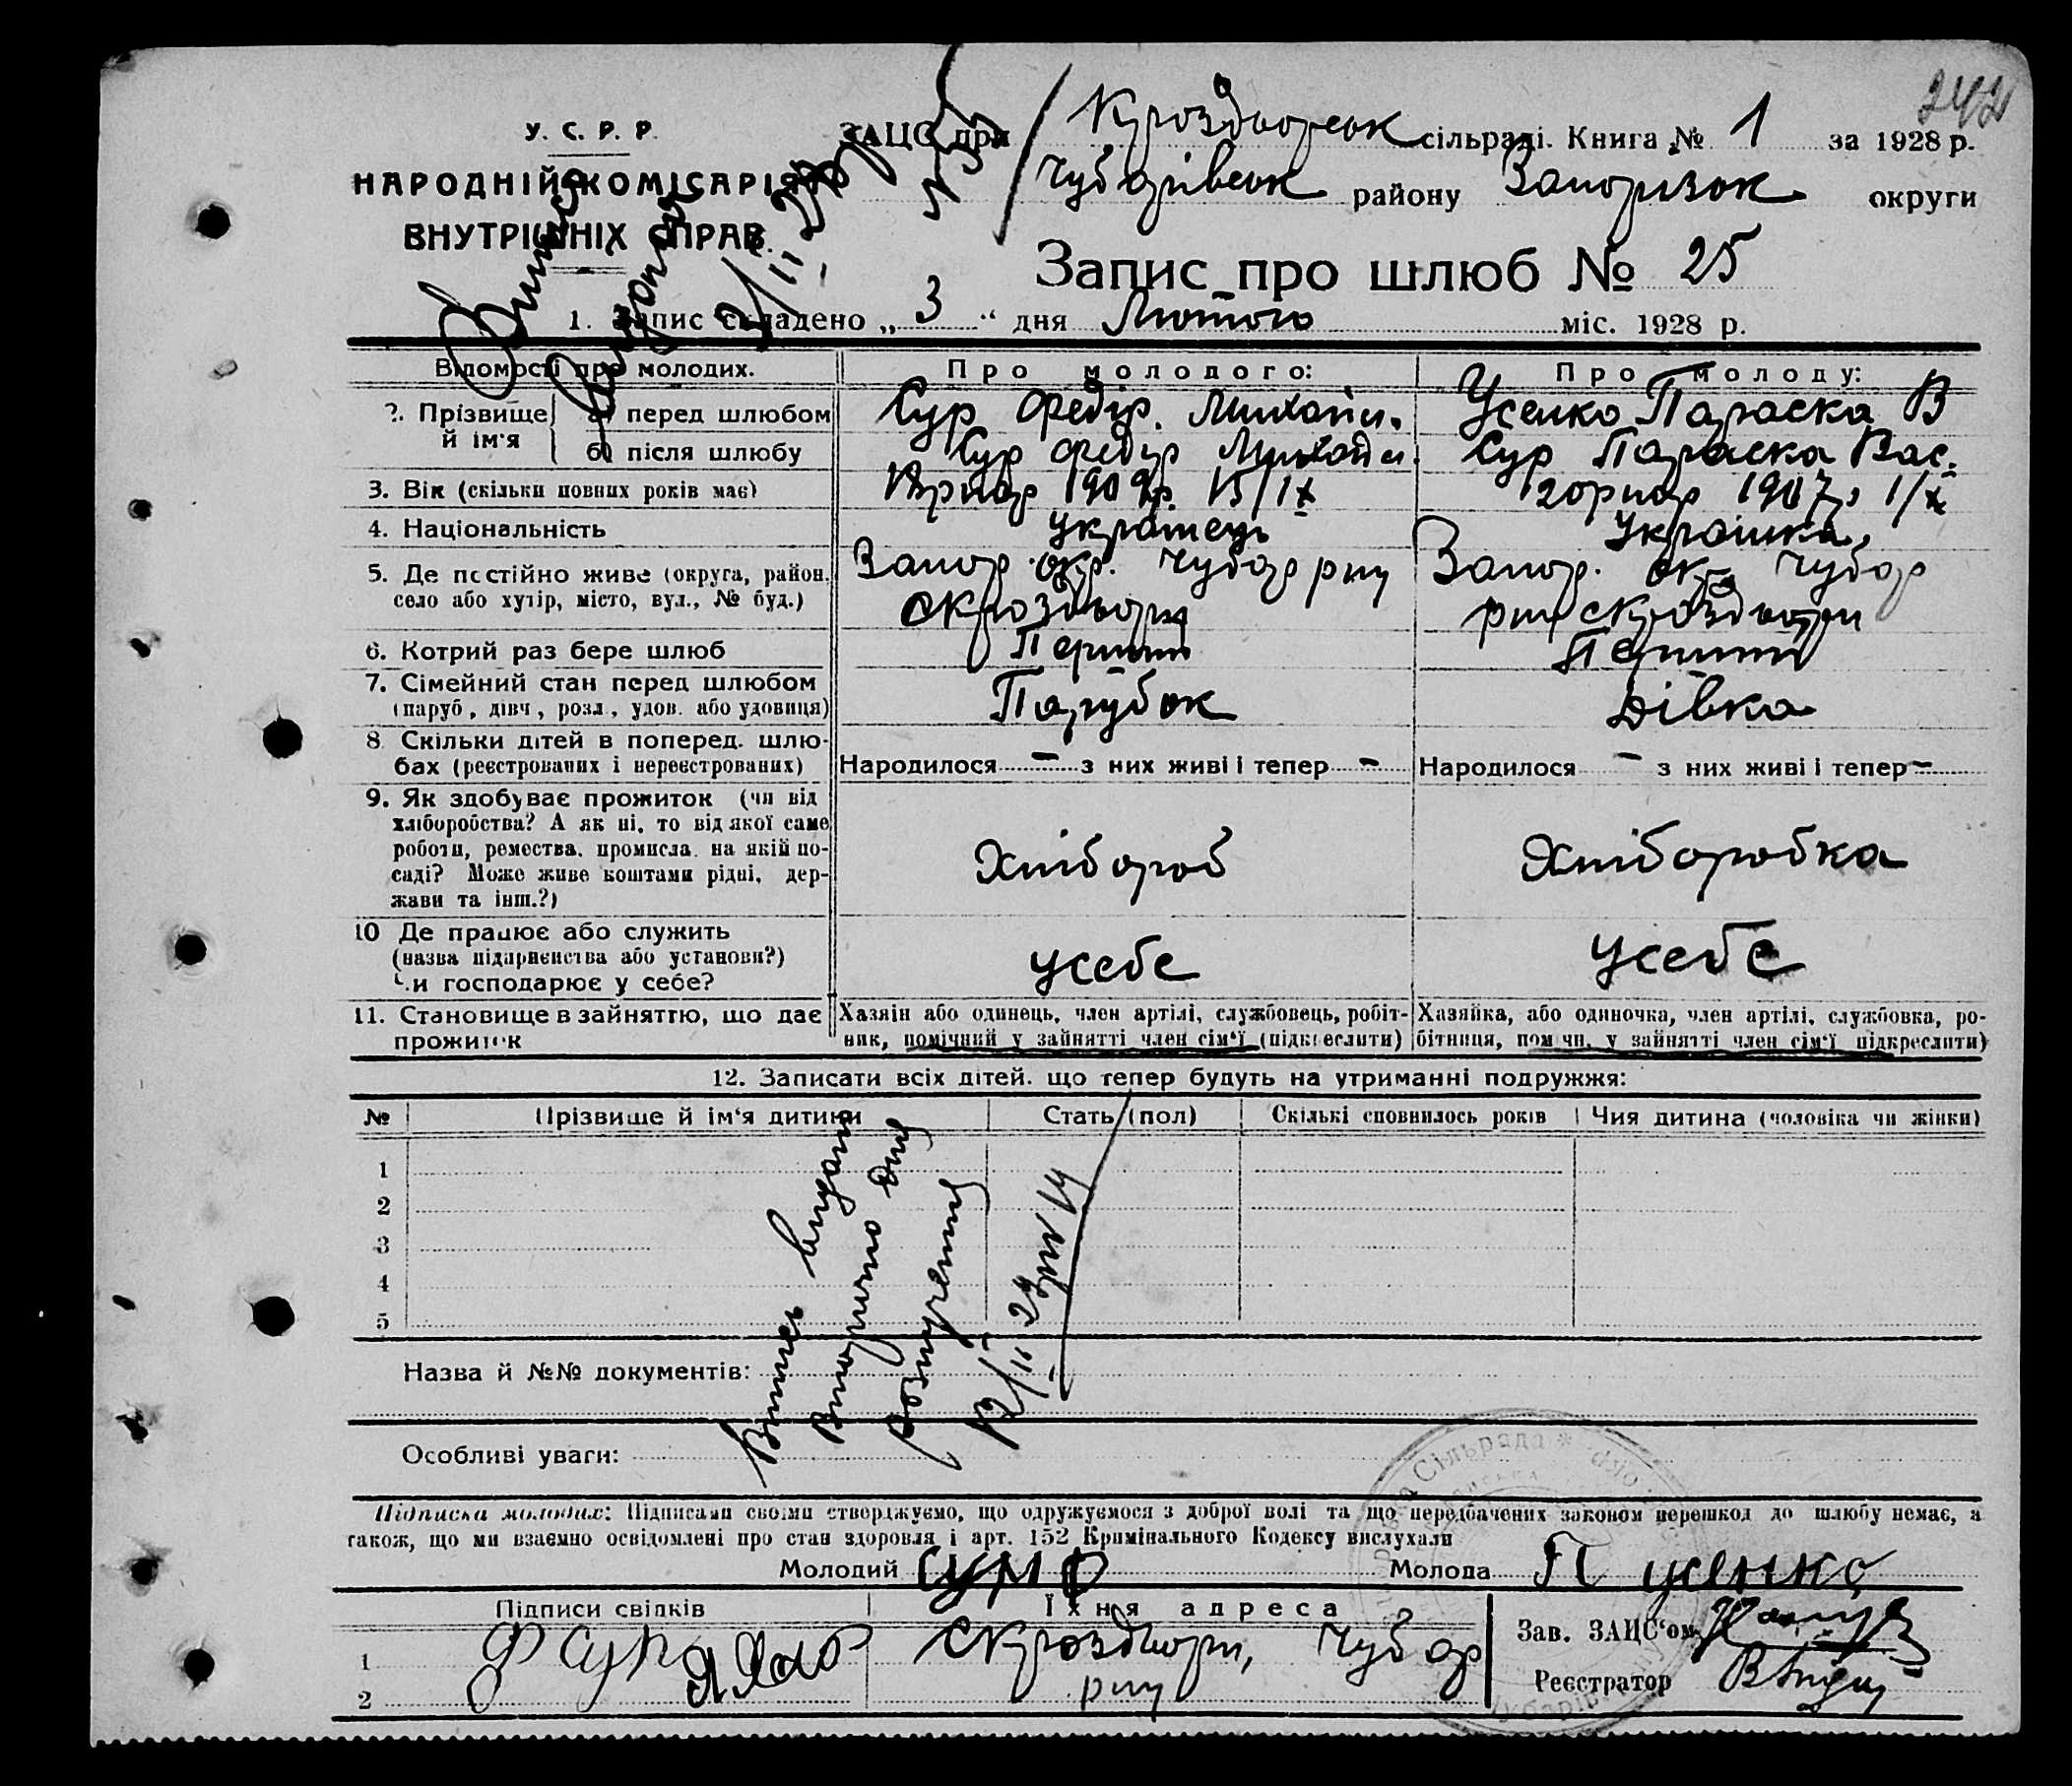 242
У. С. Р. Р.
НАРОДНІЙ КОМІСАРІЯТ
ВНУТРІШНІХ СПРАВ.
ЗАЦС при сільраді. Книга № 1 за 1928 р.
Чубарівськ району Запорізьк округи
Запис про шлюб № 25
1. Запис складено „ 3 “ дня Лютого міс. 1928 р.
Відомості про молодих. Про молодого: Про молоду:
2. Прізвище й ім'я
а) перед шлюбом Сур Федір. Михайл. Усенко Параска В
б) після шлюбу Сур Федір Михайл. Сур Параска Вас.
3. Вік (скільки повних років має) 1909р. 15/IX 1907р 1/X
4. Національність Українець Українка
5. Де постійно живе (округа, район, Запор. окр. Чубар рну Запор. окр Чубар
село або хутір, місто, вул., № буд.)
6. Котрий раз бере шлюб Перший Перший
7. Сімейний стан перед шлюбом Парубок Дівка
(паруб, дівч, розл, удов. або удовиця)
8. Скільки дітей в поперед. шлю-
бах (реєстрованих і нереєстрованих) Народилося – з них живі і тепер – Народилося – з них живі і тепер –
9. Як здобуває прожиток (чи від
хліборобства? А як ні, то від якої саме
роботи, ремества, промисла, на якій по-
саді? Може живе коштами рідні, дер-
жави та інш.?)
Хлібороб Хліборобка
10 Де працює або служить
(назва підприємства або установи?)
Чи господарює у себе?
усебе усебе
11. Становище в зайняттю, що дає
прожиток
Хазяін або одинець, член артілі, службовець, робіт-
ник, помічний у зайнятті член сім'ї (підкреслити)
Хазяйка, або одиночка, член артілі, службовка, ро-
бітниця, пом чн. у зайнятті член сім'ї підкреслити)
12. Записати всіх дітей, що тепер будуть на утриманні подружжя:
№ Прізвище й ім'я дитини Стать (пол) Скількі сповнилось років Чия дитина (чоловіка чи жінки)
1
2
3
4
5
Витяг видано
Вторично для
12/II 29
Назва й №№ документів:
Особливі уваги:
Підписка молодих: Підписами своїми стверджуємо, що одружуємося з доброї волі та що передбачених законом перешкод до шлюбу немає, а
також, що ми взаємно освідомлені про стан здоровля і арт. 152 Кримінального Кодексу вислухали
Молодий Сур Ф Молода П усенко
Підписи свідків Їхня адреса
1 Ф Сур Чубар
2 рну
Зав. ЗАЦС'ом
Реєстратор
Сільрада